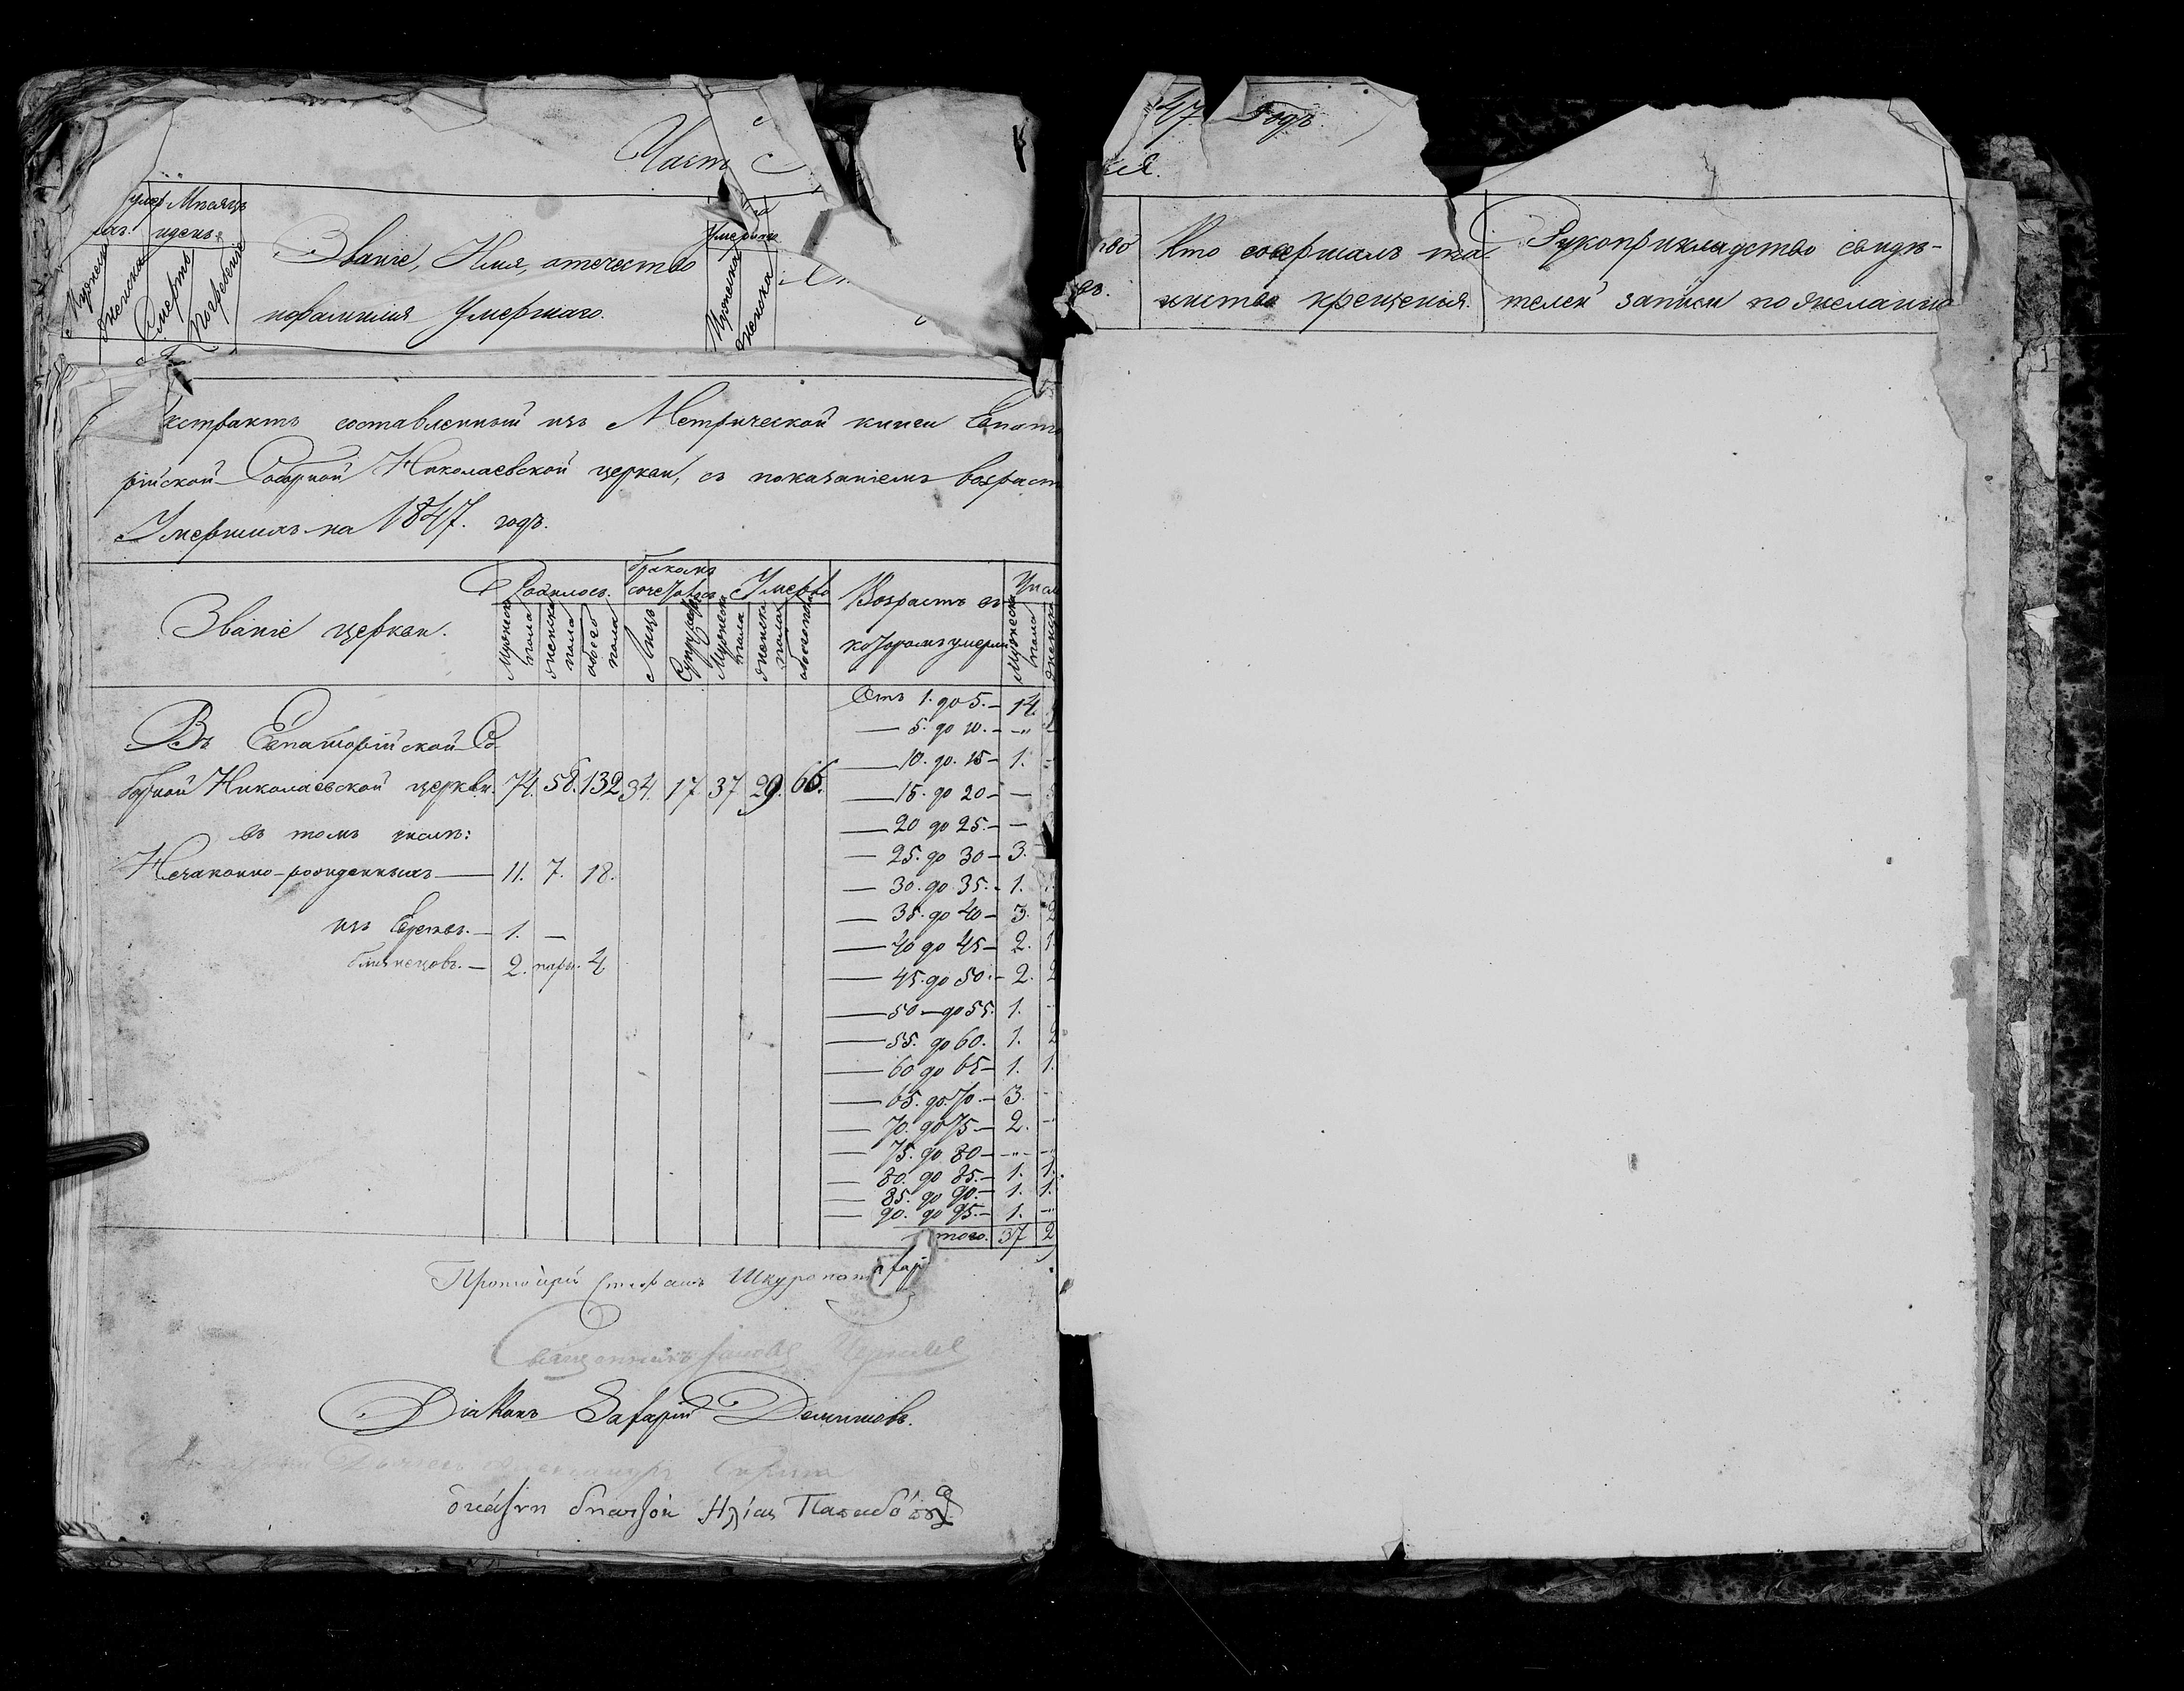 Часть
47. Годъ.
Мѣсяцъ
и день
Мужеска
женска
Смерть
Погребеніе
Званіе, Имя, отечество
и фамилия Умершаго.
Мужеска
женска
Кто совершалъ та-
инство крещенія.
Рукоприкладство свидѣ-
телей записи по желанію
кстрактъ составленный изъ Метрической книги Евпато
рійской Соборной Николаевской церкви, съ показаніемъ возраст
Умершихъ на 1847. годъ.
Званіе церкви.
Родилось.
Мужеска пола
женска пола
обоего пола
бракомъ сочеталось
Лицъ
Супружествъ
Умерло
Мужеска пола
женска пола
обоего пола
Возрастъ въ
которомъ умерли
Числ
Мужеска пола
женска
Въ Евпаторійской Со-
борной Николаевской церкви. 74. 58. 132 34. 17. 37 29. 66.
въ томъ числѣ:
Незаконно-рожденныхъ — 11. 7. 18.
изъ Евреевъ. — 1. —
близнецовъ. — 2. пары. 4
Отъ 1. до 5. — 14.
— 5. до 10. — „
— 10. до 15 — 1.
— 15. до 20 — —
— 20 до 25. — —
— 25. до 30 — 3.
— 30. до 35. — 1.
— 35. до 40 — 3. 2
— 40 до 45 — 2. 1.
— 45. до 50. — 2. 2
— 50 — до 55. 1.
— 55. до 60. 1. 2
— 60 до 65 — 1. 1.
— 65. до 70. — 3.
— 70. до 75 — 2.
— 75. до 80 — „
— 80. до 85. — 1. 1.
— 85. до 90. — 1. 1.
— 90. до 95. — 1. „
того. 37 2
Протоіерей Стефанъ Шкуропат
Священникъ Іаковъ
Діаконъ Захарій Демишевъ.